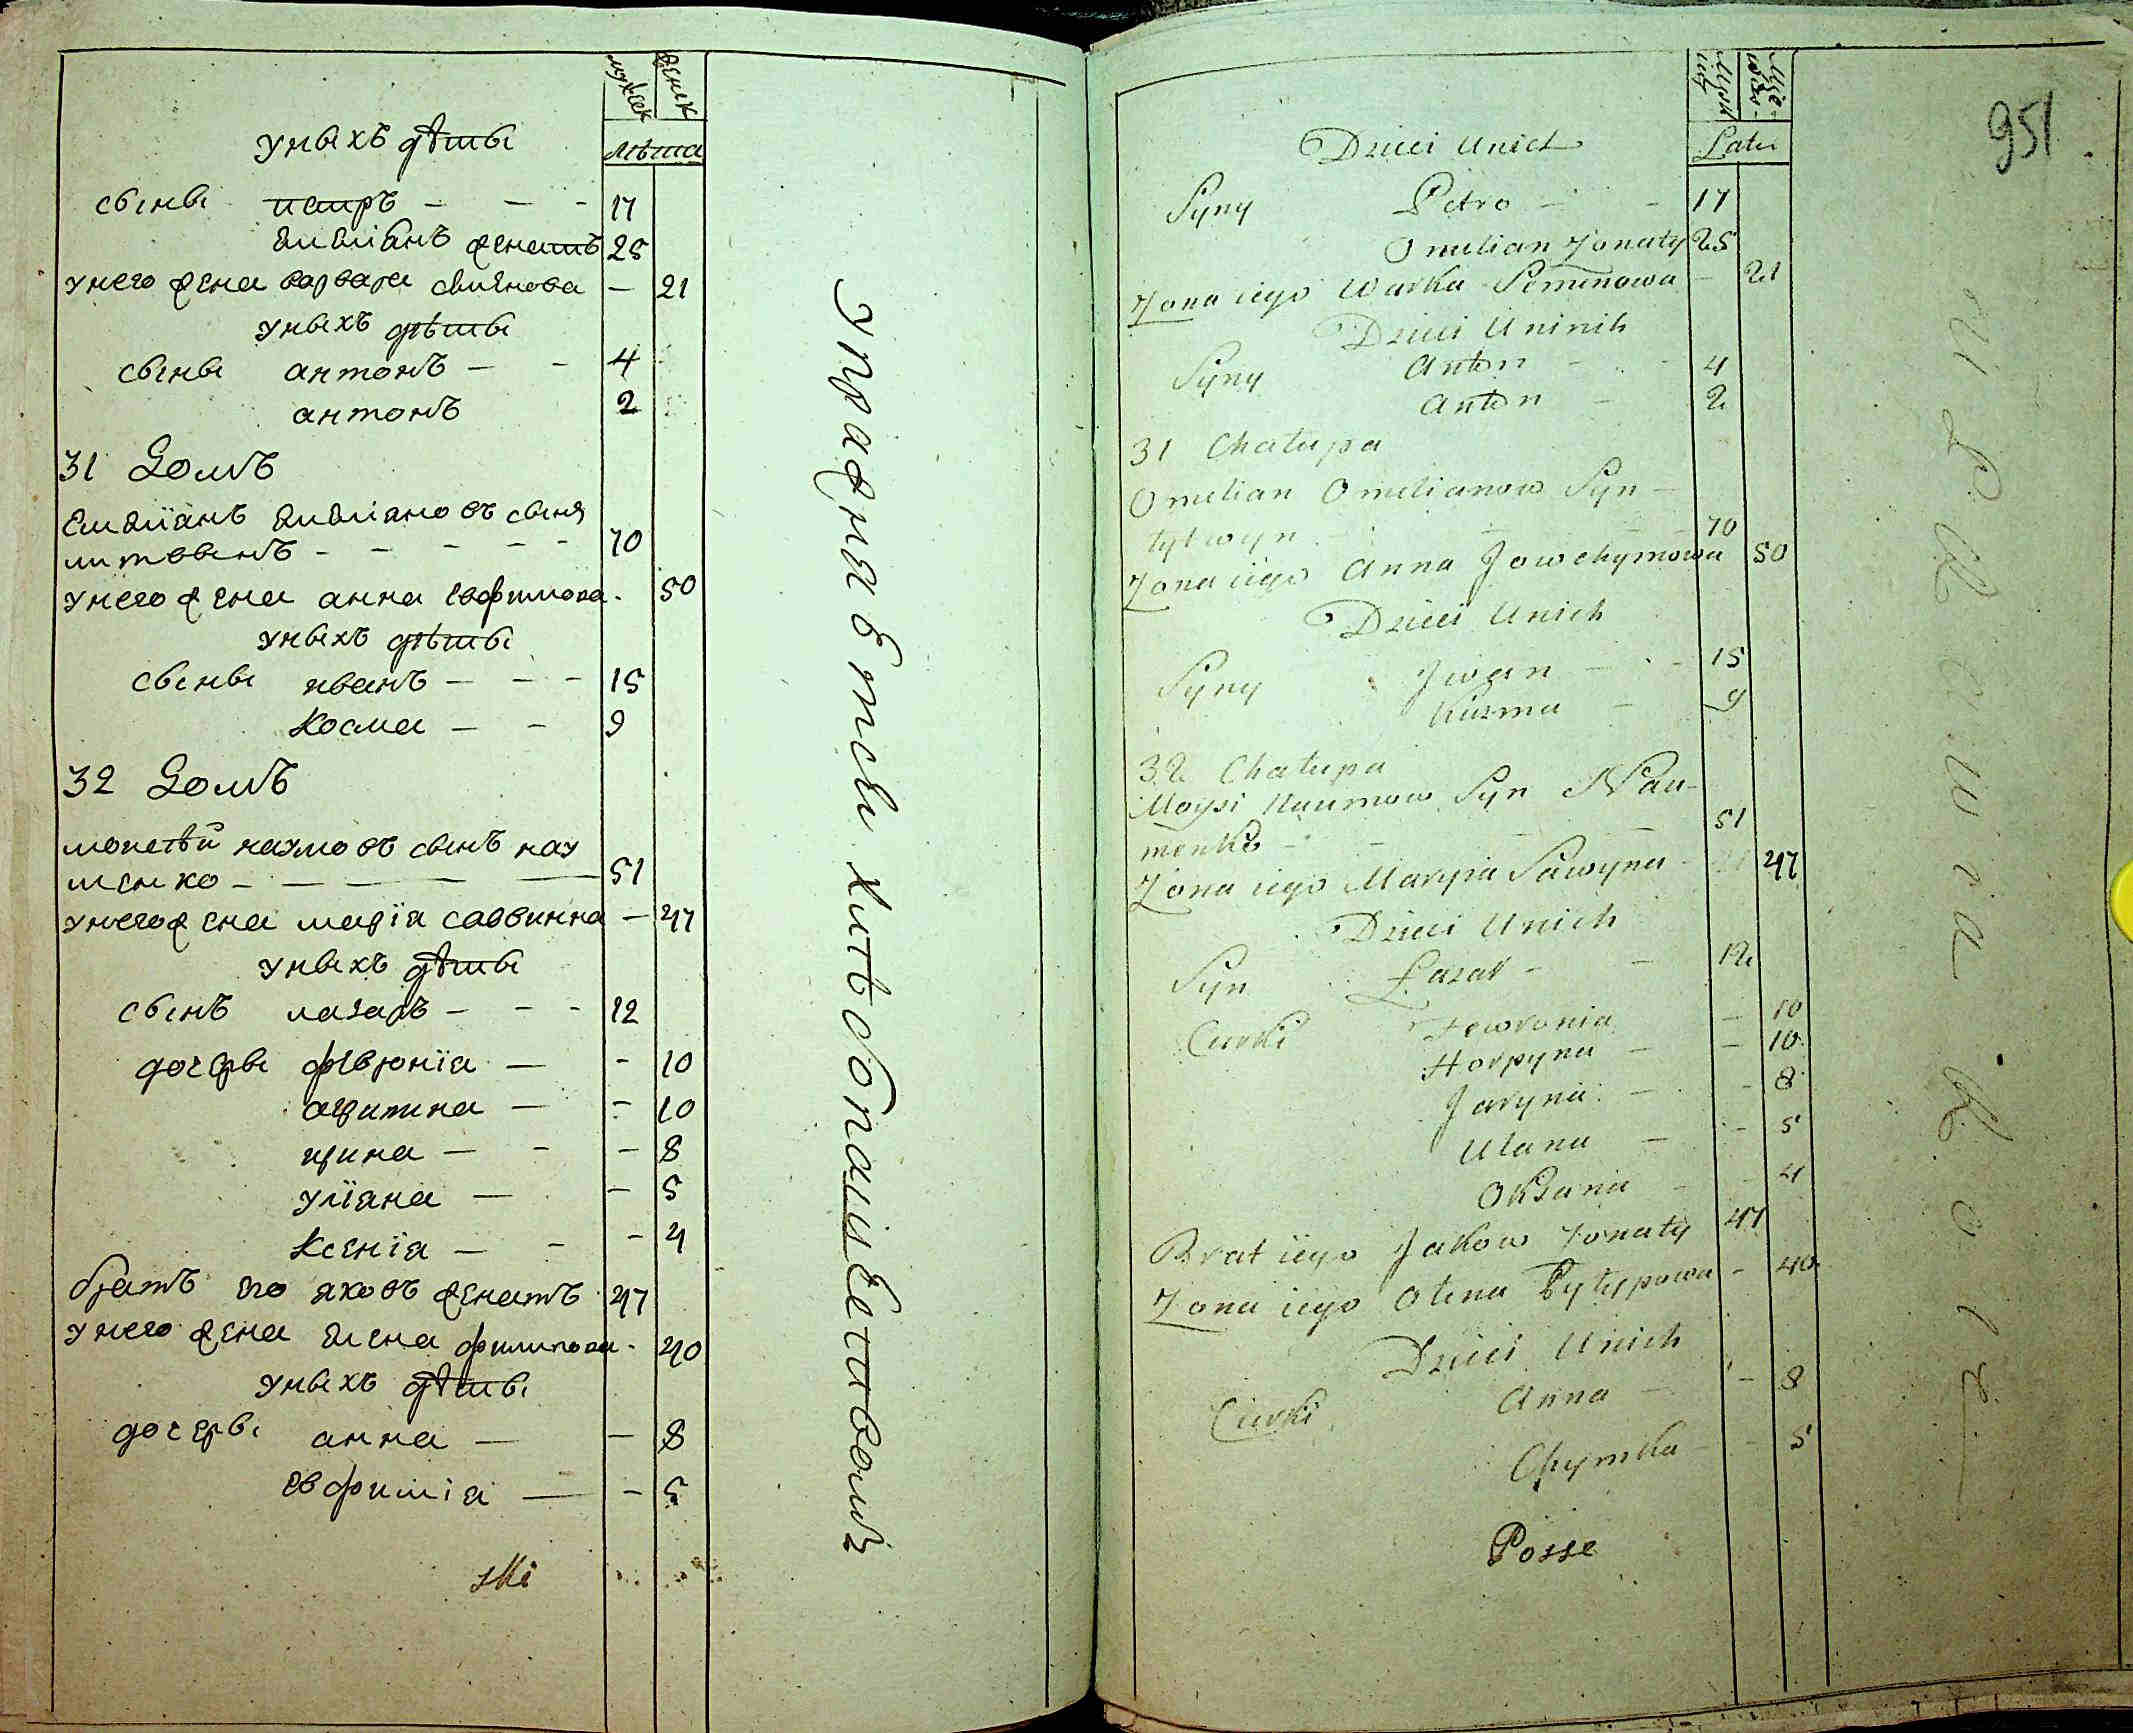 мужеск женск
лѣта
У ныхъ дѣты
сыны петръ - - - 17
Емелїанъ женатъ 25
У него жена варвара семенова - 21
У ныхъ дѣты
сыны антонъ - - 4
антонъ 2
31 Домъ
Емелїанъ Емелїановъ сынъ
литвынъ - - - - - 70
У него жена анна евфимова - 50
У ныхъ дѣты
сыны иванъ - - - 15
Косма - - 9
32 Домъ
моисей наумовъ сынъ нау
менко - - - - 51
У него жена марїя саввинна - 47
У ныхъ дѣты
сынъ лазаръ - - - 12
дочеры февронїа - - 10
агрипина - - 10
ирина - - - 8
улїана - - 5
Ксенїа - - - 4
братъ его яковъ женатъ 47
У него жена Елена филипова - 40
У ныхъ дѣты
дочеры анна - - 8
евфимїа - - 5
ski
951
Dzieci Unich
Latu
Syny Petro - - 17
Omelian Zonaty 25
Zona iego Warka Semenowa - 21
Dzieci Uninih
Syny Anton - - 4
Anton - 2
31 Chatupa
Omelian Omelianow Syn -
lytwyn - - - 70
Zona iego Anna Jowchymowa 50
Dzieci Unich
Syny Jwan - - - 15
Kuzma - 9
32 Chatupa
Moysi Naumow Syn Nau-
menko - - - 51
Zona iego Marya Sawyna - 47
Dzieci Unich
Syn Łazar - - 12
Curki Fewronia - 10
Horpyna - - 10
Jaryna - - 8
Ulana - - 5
Oksana - - 4
Brat iego Jakow Zonaty 47
Zona iego Olena Pylypowa - 40
Dzieci Unich
Curki Anna - - 8
Chymka - - 5
Posse